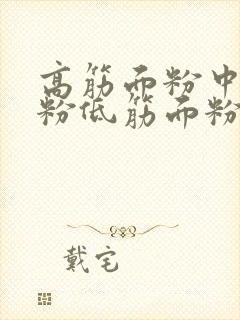 高筋面粉中
粉低筋面粉
戴宅